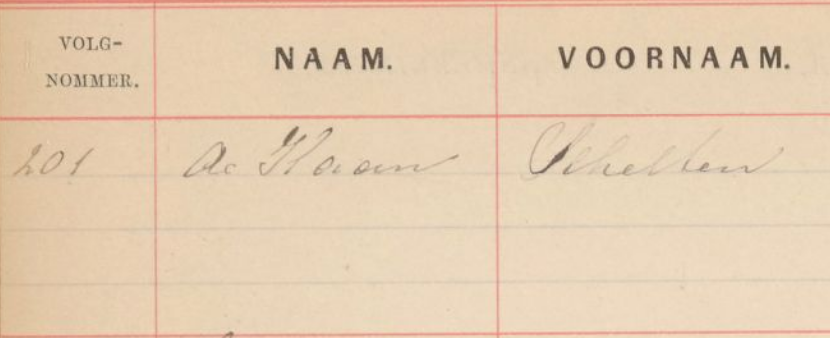 VOLG-
NOMMER.
NAAM.
VOORNAAM.
201
de Haan
Schelten